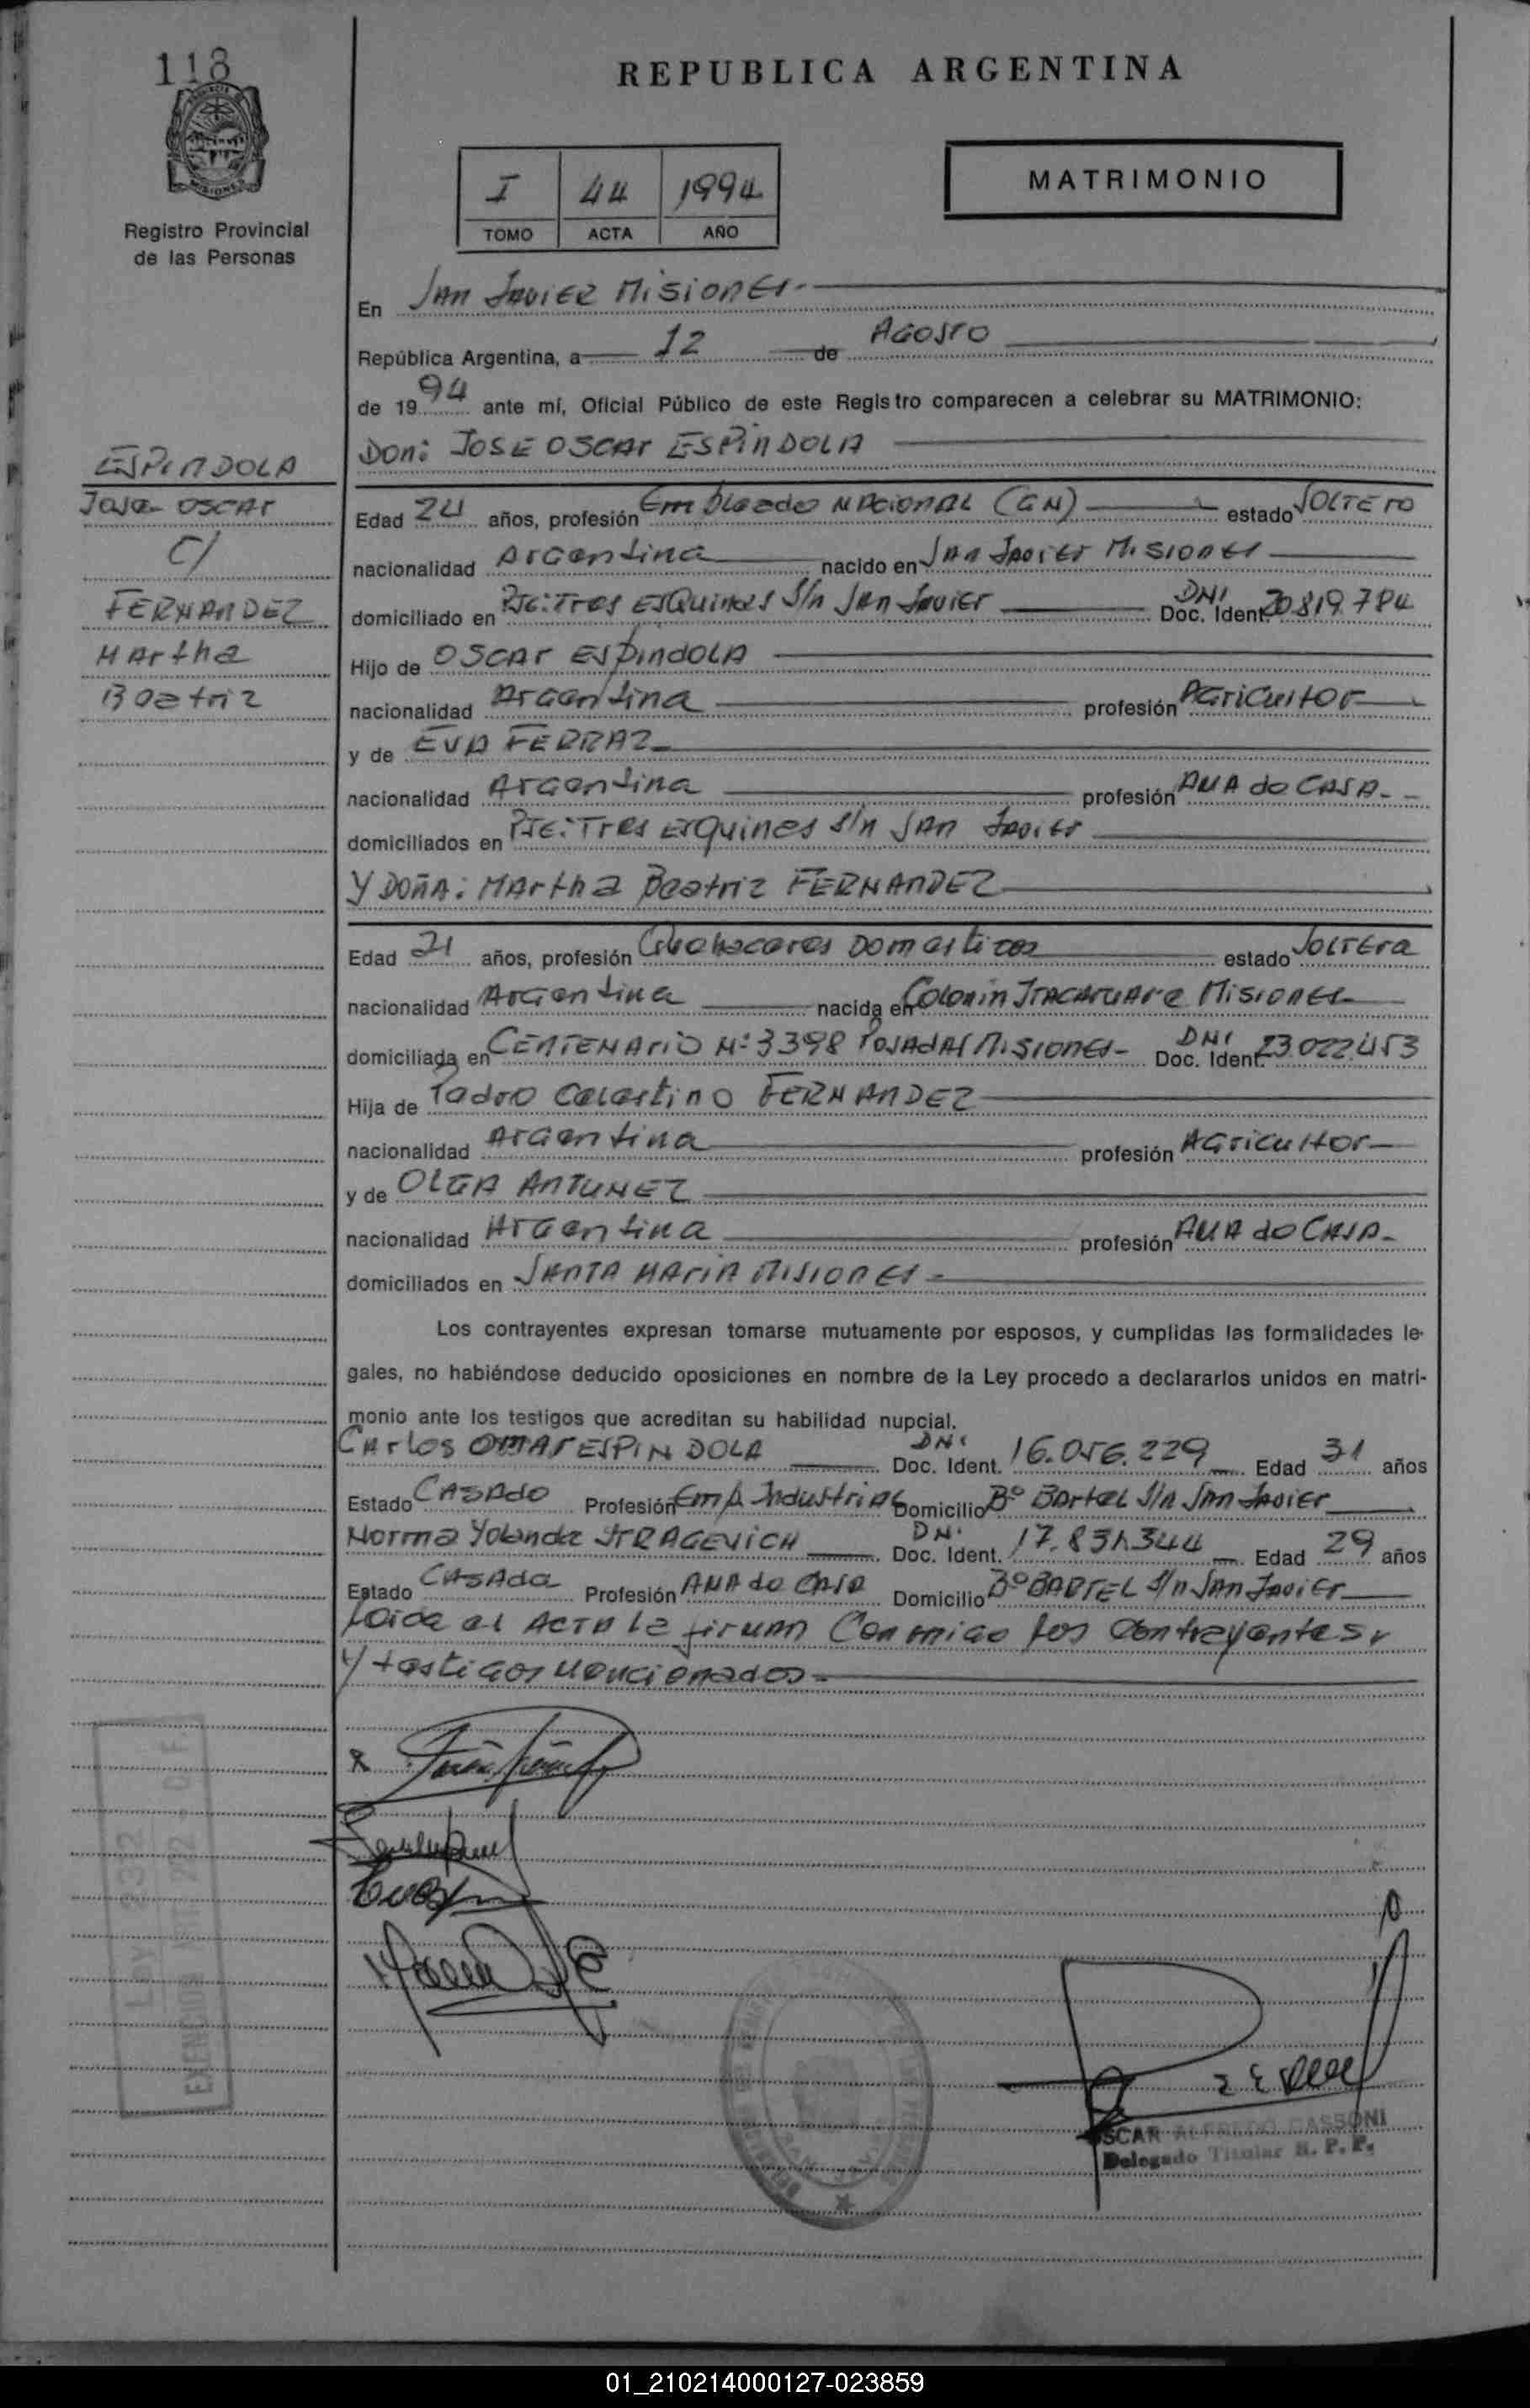 118
REPUBLICA ARGENTINA
MATRIMONIO
I 44 1994
TOMO ACTA AÑO
MISIONES
Registro Provincial
de las Personas
En San Javier Misiones.-
República Argentina, a 12 de Agosto
de 1994 ante mí, Oficial Público de este Registro comparecen a celebrar su MATRIMONIO:
Don: JOSE OSCAR ESPINDOLA
ESPINDOLA
Jose OSCAR
C/
FERNANDEZ
Martha
Beatriz
Edad 24 años, profesión Empleado NACIONAL (GN) estado SOLTERO
nacionalidad Argentina nacido en San Javier Misiones
domiciliado en Pje: Tres ESQuinas S/n San Javier DNI Doc. Ident. 20.819.784
Hijo de OSCAR ESpindOLA
nacionalidad Argentina profesión AGricultor
y de EVA FERRAZ
nacionalidad Argentina profesión AMA de CASA.-
domiciliados en Pje: Tres esquinas s/n SAn Javier
Y DOÑA: MArtha Beatriz FERNANDEZ
Edad 21 años, profesión Quehaceres Domesticos estado SOLTEra
nacionalidad Argentina nacida en Colonia Misiones
domiciliada en CENTENARIO Nº 3398 POSADAS Misiones- DNI Doc. Ident. 23.022.453
Hija de Pedro Celestino FERNANDEZ
nacionalidad Argentina profesión AGricultor
y de OLGA ANTUNEZ
nacionalidad Argentina profesión AMA de CASA-
domiciliados en SANTA MARIA MISIONES-
Los contrayentes expresan tomarse mutuamente por esposos, y cumplidas las formalidades le-
gales, no habiéndose deducido oposiciones en nombre de la Ley procedo a declararlos unidos en matri-
monio ante los testigos que acreditan su habilidad nupcial.
CArlos OMAR ESPINDOLA DNI Doc. Ident. 16.056.229 Edad 31 años
Estado CASAdo Profesión Emp. Industrial Domicilio Bº Bartel S/n San Javier
Norma Yolanda STRAGEVICH DNI Doc. Ident. 17.831.344 Edad 29 años
Estado CASAda Profesión AMA de CASA Domicilio Bº BARTEL S/n San Javier
Leida el ACTA la firman Conmigo los Contrayentes
y testigos mencionados-
LEY 832
OSCAR ALFREDO CASSONI
Delegado Titular R. P. P.
01_210214000127-023859